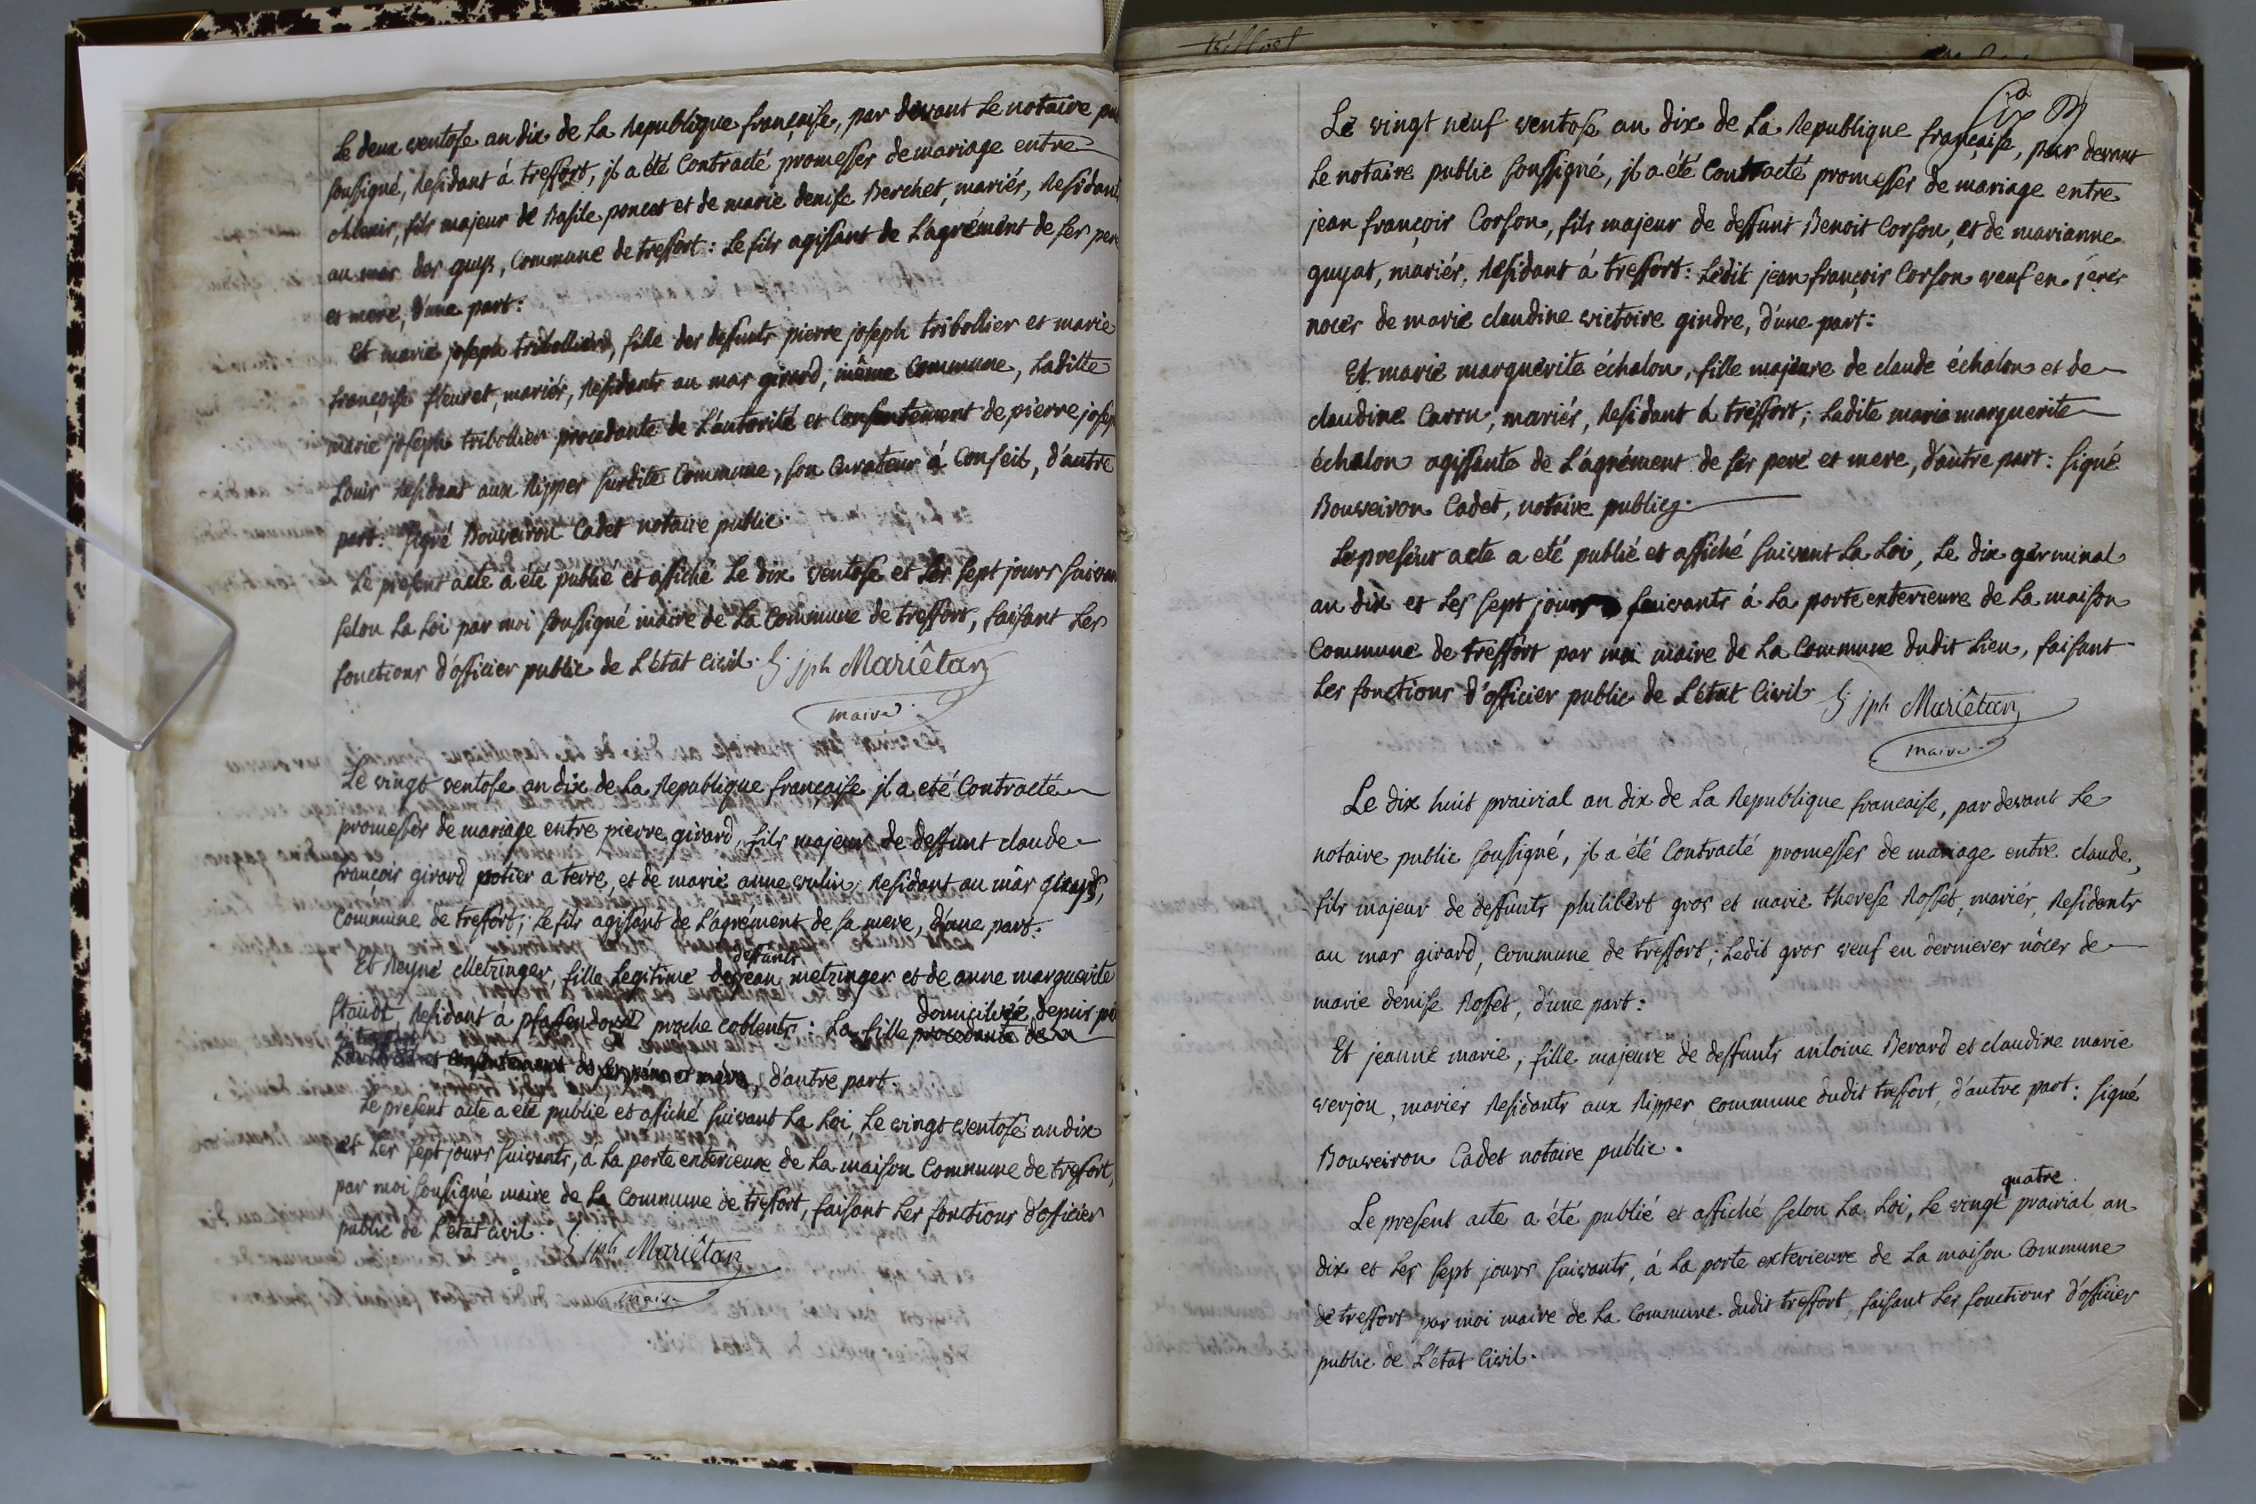 Le deux ventose an dix de la Republique françaisse, par devant le notaire pu
soussigné, Residant à treffort, il a été Contracté promesses de mariage entre
Alexis, fils majeur de Basile poncet et de marie denise Berchet, mariés, Residant
au mas des guys, Commune de treffort: le fils agissant de l'agrément de ses per
et mere, d'une part:
Et marie joseph tribollier, fille des deffunts pierre joseph tribollier et marie
françoise fleuret, mariés, Residants au mas girard, même Commune, Laditte
marie joseph tribollier procedante de L'autorité et Consentement de pierre josep
Louis Residant aux Rippes surditte Commune, son Curateur à Conseil, d'autre
part: signé Bouveiron Cadet notaire public.
Le present acte a été publié et affiché Le dix ventose et les sept jours suivan
selon La Loi par moi soussigné maire de La Commune de treffort, faisant Les
fonctions d'officier public de L'état Civil. jph Mariêtan
maire
Le vingt ventose an dix de La Republique françaisse il a eté Contracté
promesses de mariage entre pierre girard, fils majeur de deffunt claude
françois girard potier a terre, et de marie anne vulin, Residant au mâs
Commune de treffort; Le fils agissant de L'agrément de sa mere, d'une part.
deffunts
Et Reyne Metzinger, fille Legitime de jean metzinger et de anne marguerite
Staudt, Residant à pfaffendorf proche coblents: La fille procedante de
domiciliée depuis
Consentement de ses pere et mere, d'autre part.
Le present acte a eté publié et affiché suivant La Loi, Le vingt ventose an dix
et Les sept jours suivants, a La porte exterieure de La maison Commune de treffort,
par moi soussigné maire de La Commune de treffort, faisant Les fonctions d'officier
public de L'état Civil. jph Mariêtan
maire
Le vingt neuf ventose an dix de La Republique françaisse, par devant
Le notaire public soussigné, il a été Contracté promesses de mariage entre
jean françois Corson, fils majeur de deffunt Benoit Corson, et de marianne
guyat, mariés, Residant à treffort: Ledit jean françois Corson veuf en 1eres
noces de marie claudine victoire gindre, d'une part:
Et marie marguerite échalon, fille majeure de claude échalon et de
claudine Carru, mariés, Residant à treffort; Ladite marie marguerite
échalon agissante de L'agrément de ses pere et mere, d'autre part: signé
Bouveiron Cadet, notaire public.
Le present acte a eté publié et affiché suivant La Loi, Le dix germinal
an dix et Les sept jours suivants à La porte exterieure de La maison
Commune de treffort par moi maire de La Commune dudit Lieu, faisant
Les fonctions d'officier public de L'état Civil. jph Mariêtan
maire
Le dix huit prairial an dix de La Republique françaisse, par devant Le
notaire public soussigné, il a été Contracté promesses de mariage entre claude,
fils majeur de deffunts philibert gros et marie therese Rosset, mariés, Residents
au mas girard, Commune de treffort; Ledit gros veuf en dernieres nôces de
marie dénise Rosset, d'une part:
Et jeanne marie, fille majeure de deffunts antoine Berard et claudine marie
verjon, mariés Residants aux Rippes commune dudit treffort, d'autre part: signé
Bouveiron Cadet notaire public.
quatre
Le present acte a été publié et affiché selon La Loi, Le vingt prairial an
dix et Les sept jours suivants, à La porte exterieure de La maison Commune
de treffort par moi maire de La Commune dudit treffort, faisant Les fonctions d'officier
public de L'état Civil.